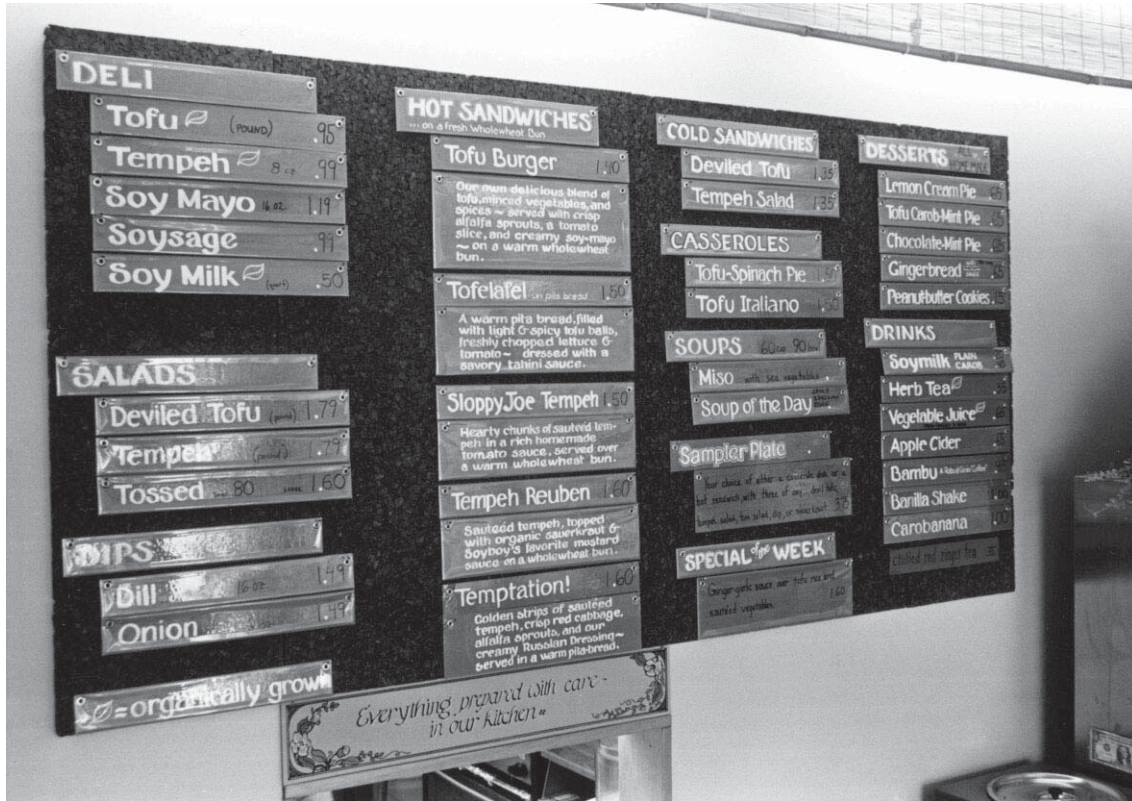 DELI
Tofu (POUND) .95
Tempeh 8 oz .99
Soy Mayo 16 oz. 1.19
Soysage .99
Soy Milk (quart) .50
SALADS
Deviled Tofu (pound) 1.79
Tempeh (pound) 1.79
Tossed .80 LARGE 1.60
DIPS
Dill 16 oz. 1.49
Onion 1.49
=organically grown
HOT SANDWICHES
...on a fresh Wholewheat Bun
Tofu Burger 1.40
Our own delicious blend of
tofu, minced vegetables, and
spices ~ served with crisp
alfalfa sprouts, a tomato
slice, and creamy soy-mayo
~ on a warm wholewheat
bun.
Tofelafel on pita bread 1.50
A warm pita bread, filled
with light & spicy tofu balls,
freshly chopped lettuce &
tomato ~ dressed with a
savory tahini sauce.
Sloppy Joe Tempeh 1.50
Hearty chunks of sautéed tem-
peh in a rich homemade
tomato sauce, served over
a warm wholewheat bun.
Tempeh Reuben 1.60
Sautéed tempeh, topped
with organic sauerkraut &
Soyboy's favorite mustard
sauce on a wholewheat bun.
Temptation! 1.60
Golden strips of sautéed
tempeh, crisp red cabbage,
alfalfa sprouts, and our
creamy Russian Dressing ~
served in a warm pita-bread.
Everything prepared with care -
in our kitchen
COLD SANDWICHES
Deviled Tofu 1.35
Tempeh Salad 1.35
CASSEROLES
Tofu-Spinach Pie 1.50
Tofu Italiano 1.50
SOUPS 60 cup 90 bowl
Miso with sea vegetables
Soup of the Day
Sampler Plate
Your choice of either a casserole dish or a
hot sandwich with three of any: devil tofu,
tempeh salad, toss salad, dip, or
SPECIAL of the WEEK
Ginger-garlic sauce over tofu rice and
sautéed vegetables. 1.60
DESSERTS
Lemon Cream Pie .65
Tofu Carob-Mint Pie
Chocolate-Mint Pie
Gingerbread .65
Peanutbutter Cookies .15
DRINKS
Soymilk PLAIN
CAROB
Herb Tea
Vegetable Juice
Apple Cider
Bambu
Banilla Shake 1.00
Carobanana 1.00
chilled red zinger tea .35